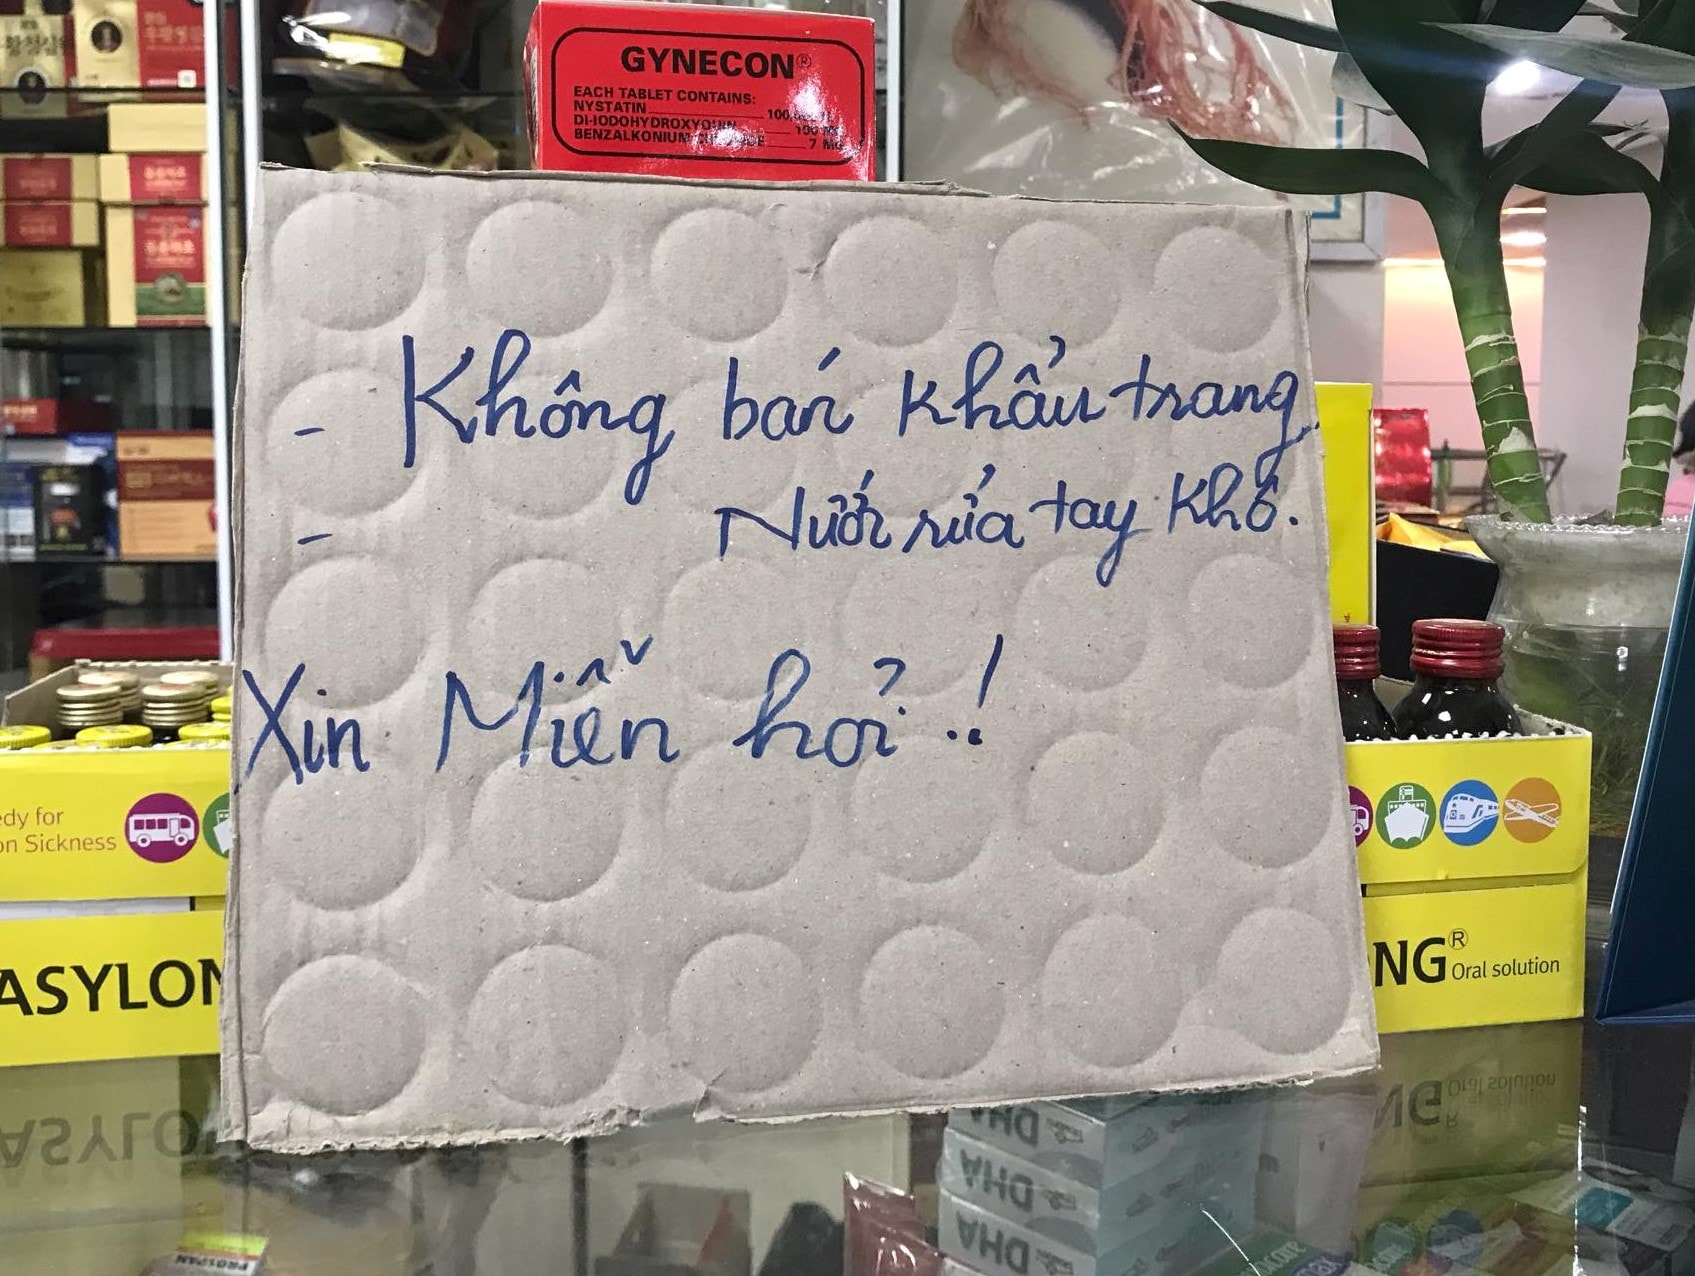 GYNECON®
EACH TABLET CONTAINS:
NYSTATIN 100,
DI-IODOHYDROXYQUIN 100 MG
BENZALKONIUM 7 MG
- Không bán khẩu trang
- Nước rửa tay khô.
Xin Miễn hỏi !
edy for
on Sickness
ASYLON
NG®
Oral solution
DHA
DHA
DHA
PROSPAN